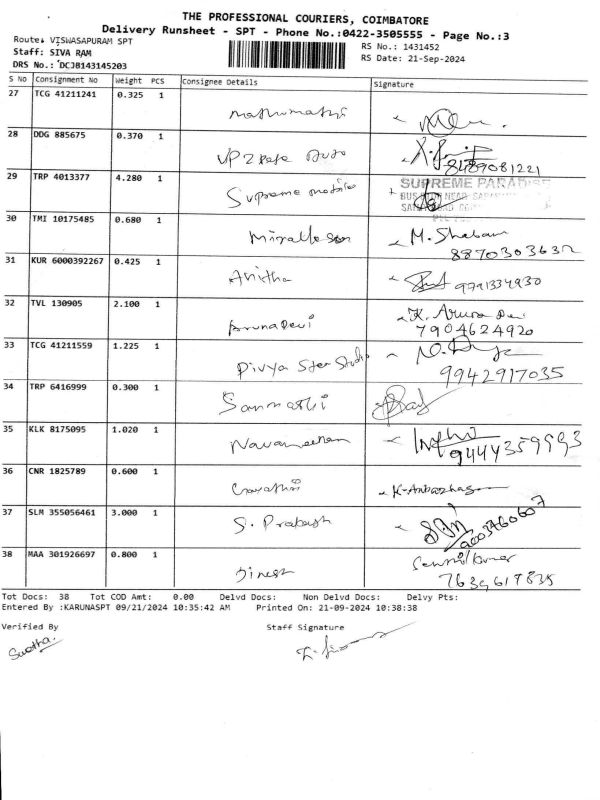 THE PROFESSIONAL COURIERS, COIMBATORE
Delivery Runsheet - SPT - Phone No.:0422-3505555 - Page No.:3
Route: VISWASAPURAM SPT
RS No.: 1431452
Staff: SIVA RAM
RS Date: 21-Sep-2024
DRS No.: DCJB143145203
S No Consignment No Weight PCS Consignee Details Signature
27 TCG 41211241 0.325 1
28 DDG 885675 0.370 1
8489081221
29 TRP 4013377 4.280 1 Supreme mobile SUPREME PARADISE
30 TMI 10175485 0.680 1 M. Shabani
8870303632
31 KUR 6000392267 0.425 1 Anitha 9791334930
32 TVL 130905 2.100 1 ArunaDevi K. Aruna Devi
7904624920
33 TCG 41211559 1.225 1 Divya Star Studio
9942917035
34 TRP 6416999 0.300 1 Sanmathi
35 KLK 8175095 1.020 1 Navaneethan
9444359993
36 CNR 1825789 0.600 1 Gayathri K. Anbazhagan
37 SLM 355056461 3.000 1 S. Prakash
38 MAA 301926697 0.800 1 Dinesh Senthil Kumar
7639617835
Tot Docs: 38 Tot COD Amt: 0.00 Delvd Docs: Non Delvd Docs: Delvy Pts:
Entered By :KARUNASPT 09/21/2024 10:35:42 AM Printed On: 21-09-2024 10:38:38
Verified By Staff Signature